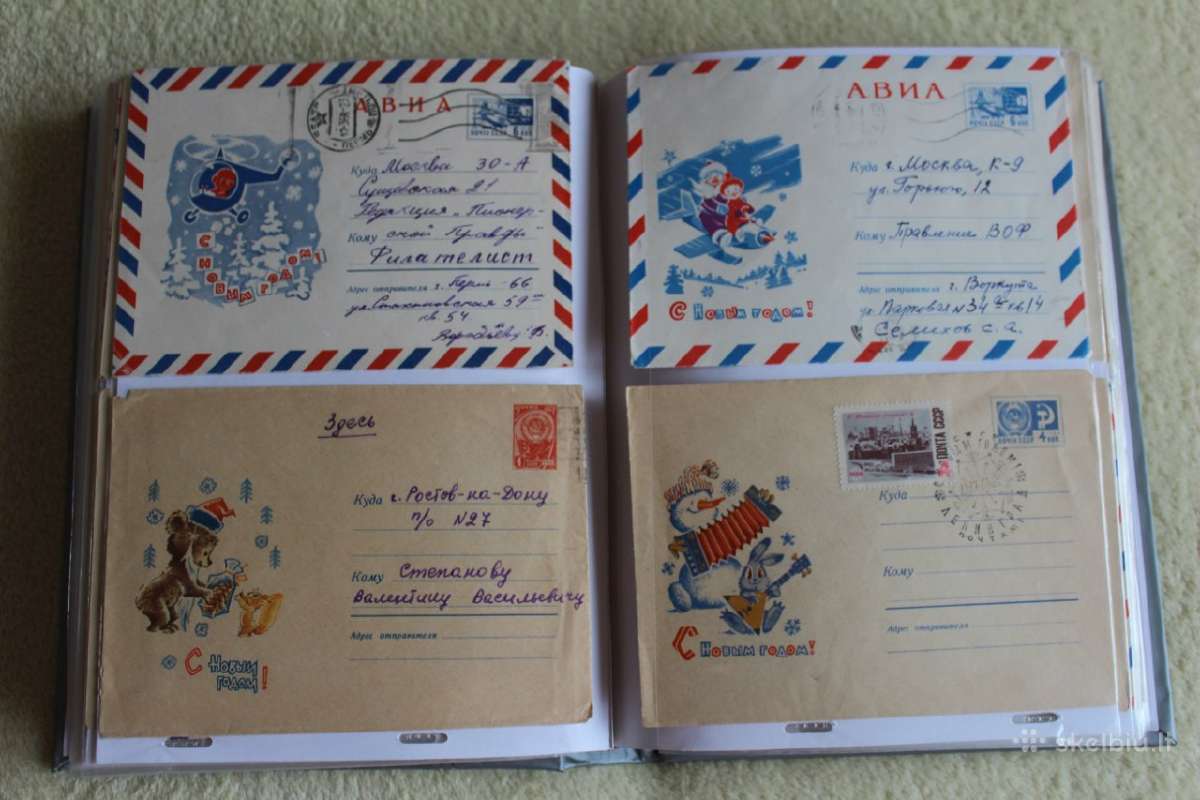 АВИА
ПОЧТА СССР 6 коп
Куда Москва 30-А
Сущёвская 21
Редакция „Пионер-
Кому ской Правды"
Филателист
Адрес отправителя г. Пермь-66
ул. Стахановская 59
кв 54
С НОВЫМ ГОДОМ!
АВИА
ПОЧТА СССР 6 коп
Куда г. Москва, К-9
ул. Горького, 12
Кому Правление ВОФ
Адрес отправителя г. Воркута
ул. Парковая №34 кв 14
Семихов С.А.
С НОВЫМ ГОДОМ!
Здесь
Куда г. Ростов-на-Дону
п/о №27
Кому Степанову
Валентину Васильевичу
Адрес отправителя
С НОВЫМ ГОДОМ!
ПОЧТА СССР
ПОЧТА СССР 4 коп
Куда
ЛЕНИНГРАД
ПОЧТАМТ
Кому
Адрес отправителя
С НОВЫМ ГОДОМ!
skelbiu.lt